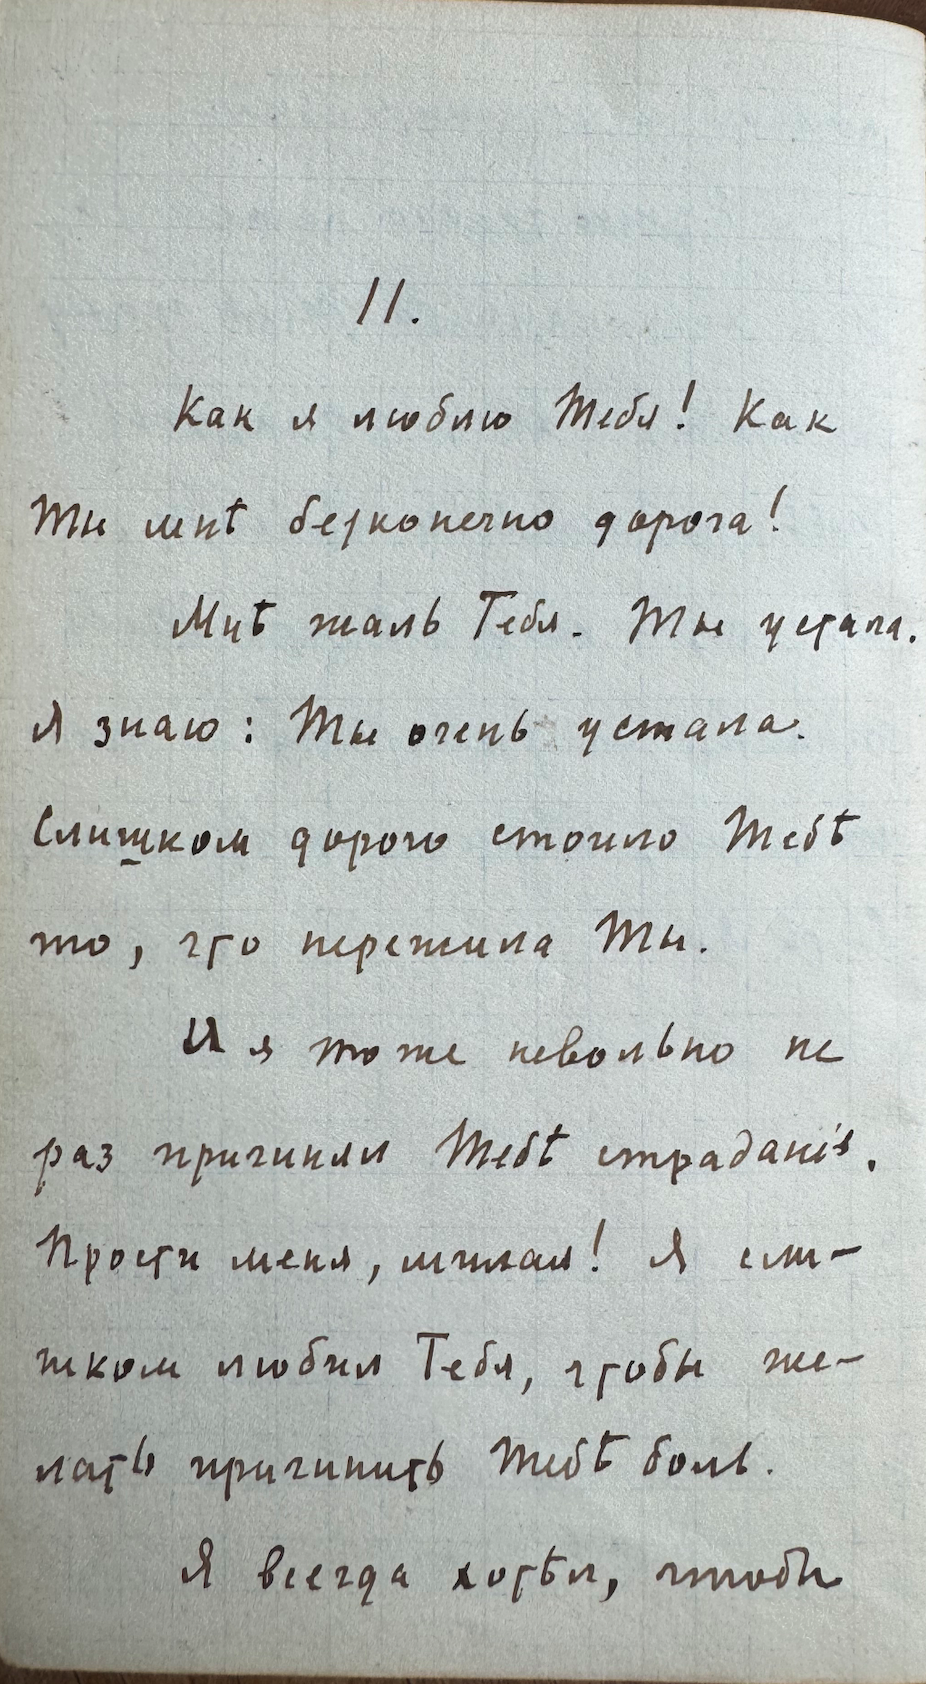 II.
Как я люблю Тебя! Как
Ты мнѣ безконечно дорога!
Мнѣ жаль Тебя. Ты устала.
Я знаю: Ты очень устала.
Слишком дорого стоило Тебѣ
то, что пережила Ты.
И я тоже невольно не
раз причинял Тебѣ страданія.
Прости меня, милая! Я сли-
шком любил Тебя, чтобы же-
лать причинить Тебѣ боль.
Я всегда хотѣл, чтобы